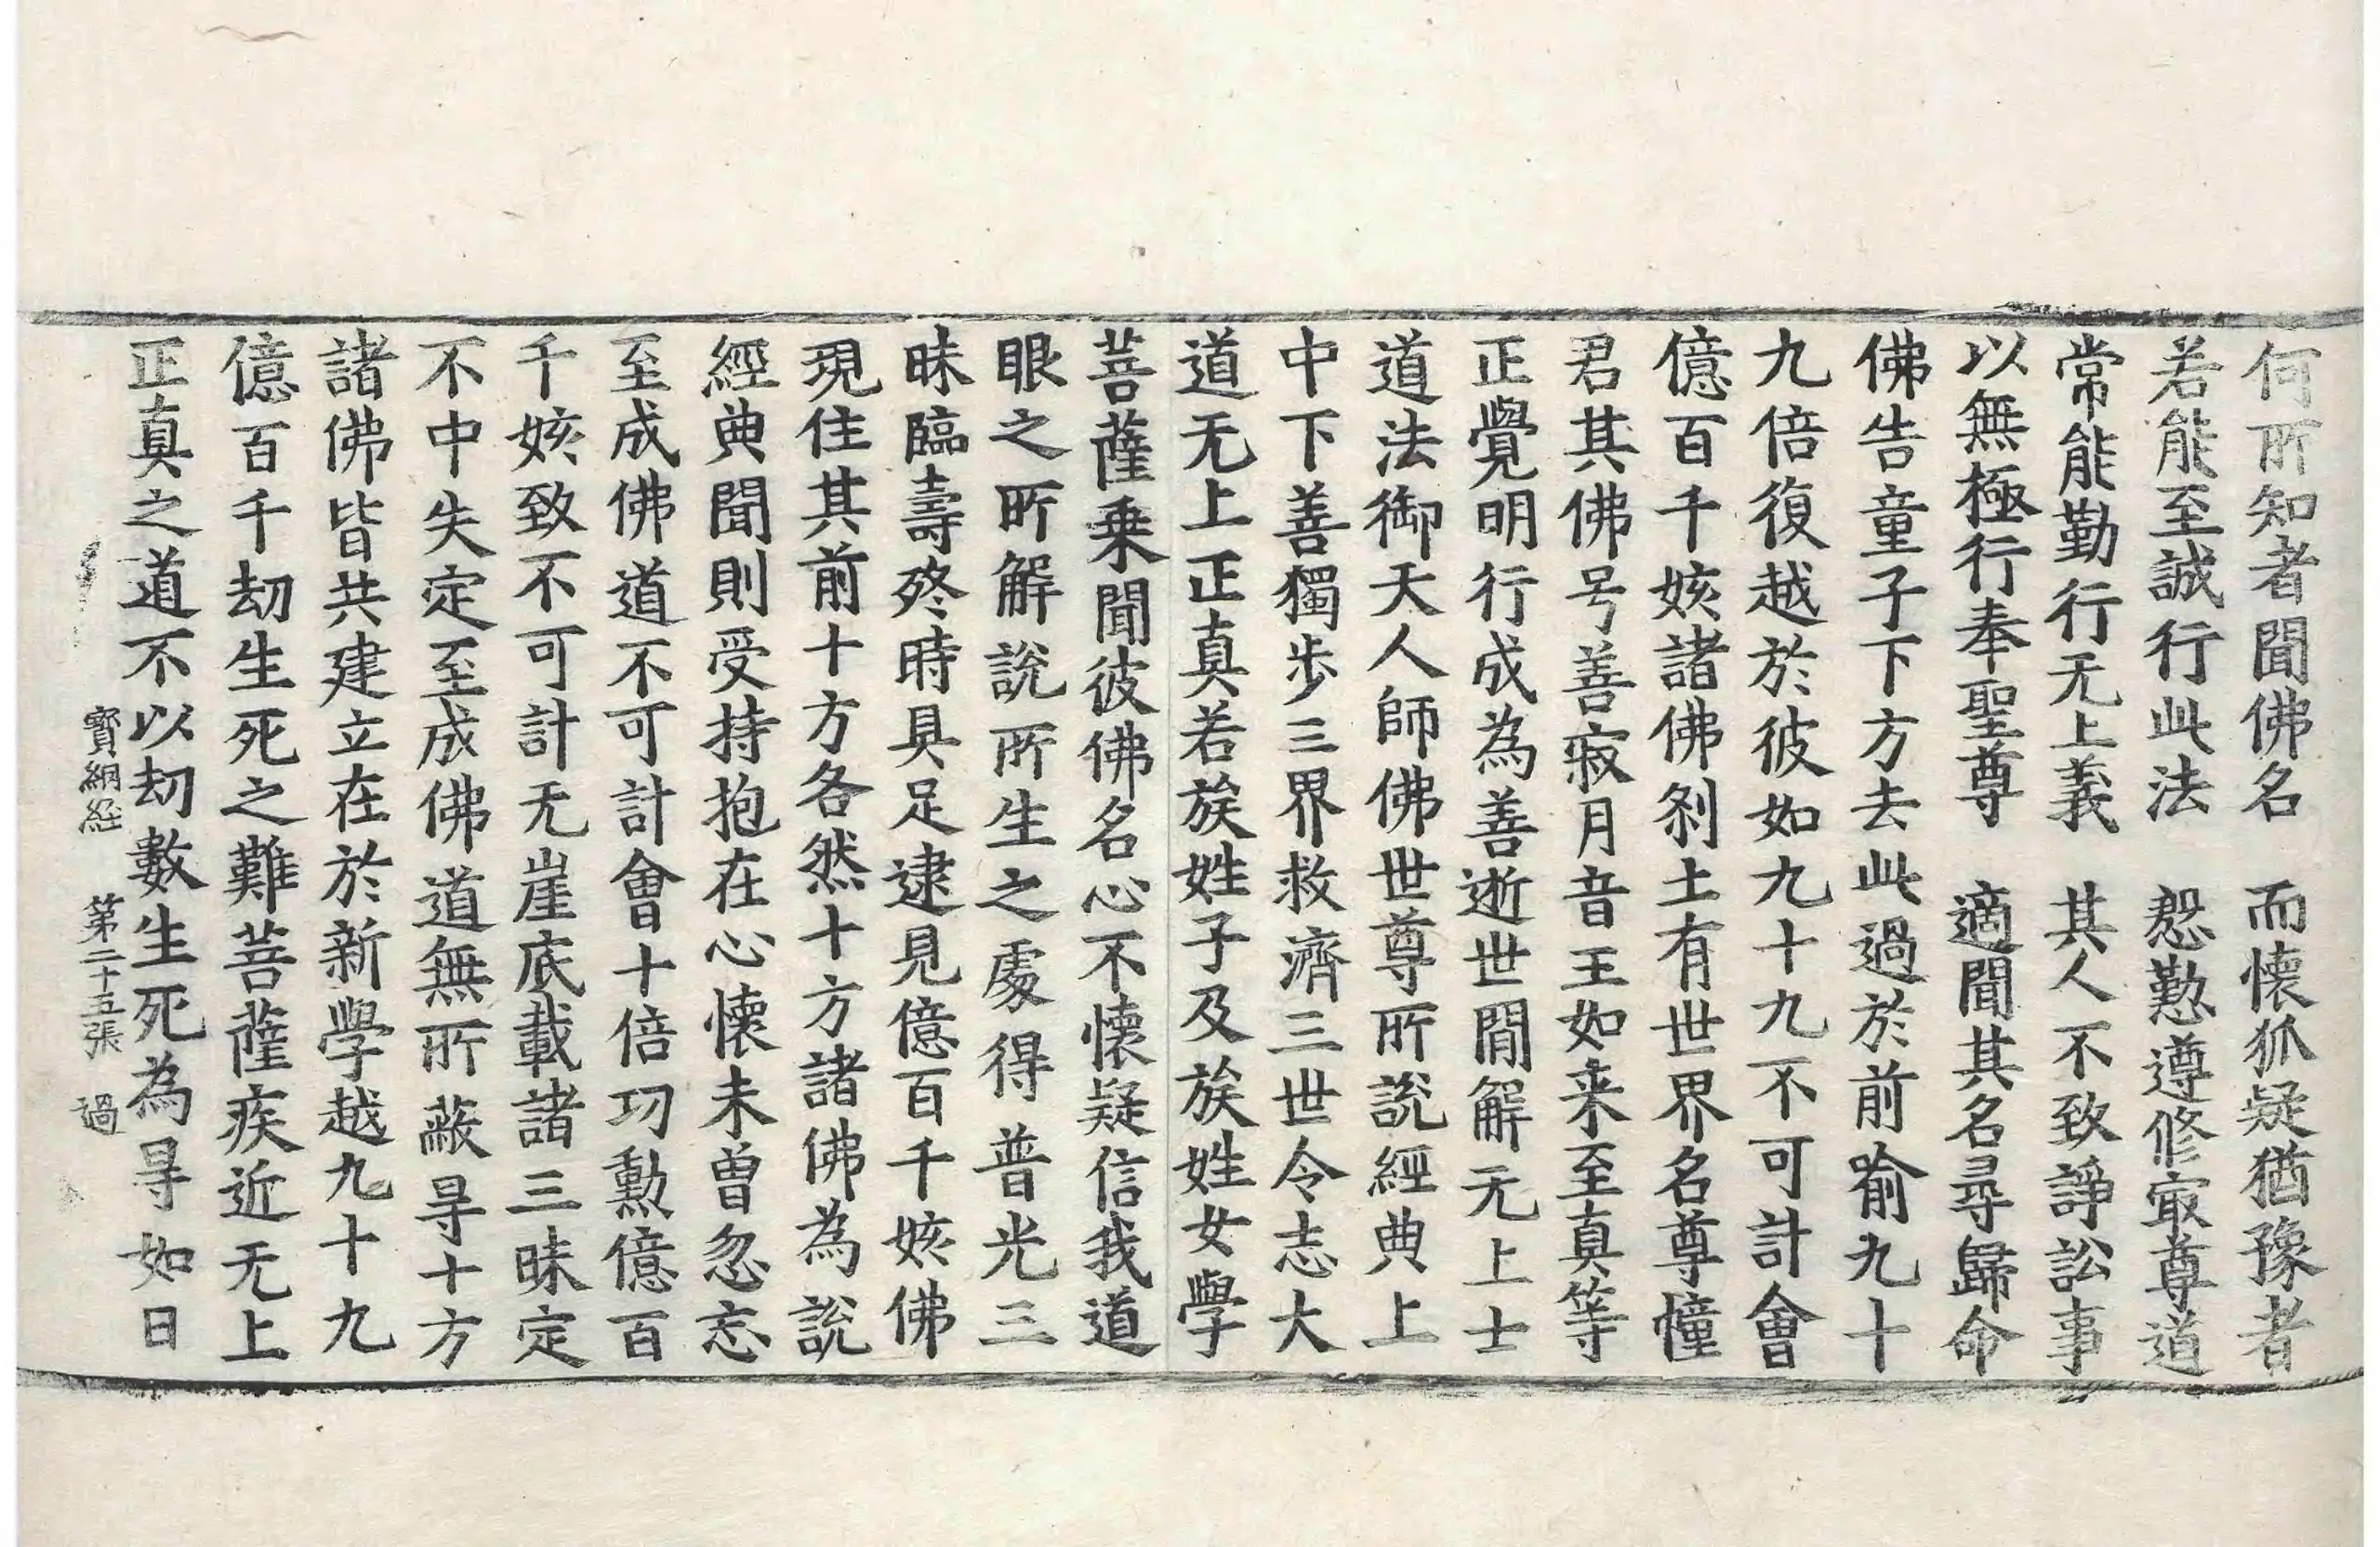 何所知者聞佛名　而懷狐疑猶豫者
若能至誠行此法　慇懃遵修㝡尊道
常能勤行无上義　其人不致諍訟事
以無極行奉聖尊　適聞其名尋歸命
佛告童子下方去此過於前喻九十
九倍復越於彼如九十九不可計會
億百千姟諸佛刹土有世界名尊憧
君其佛号善寂月音王如来至真等
正覺明行成為善逝世閒解无上士
道法御天人師佛世尊所說經典上
中下善獨步三界救濟三世令志大
道无上正真若族姓子及族姓女學
菩薩乗聞彼佛名心不懷疑信我道
眼之所解說所生之處得普光三
昧臨壽終時具足逮見億百千姟佛
現住其前十方各然十方諸佛為說
經典聞則受持抱在心懷未曽忽忘
至成佛道不可計會十倍功勳億百
千姟致不可計无崖底載諸三昧定
不中失定至成佛道無所蔽㝵十方
諸佛皆共建立在於新學越九十九
億百千劫生死之難菩薩疾近无上
正真之道不以劫數生死為㝵如日
寳網経　第二十五張　過